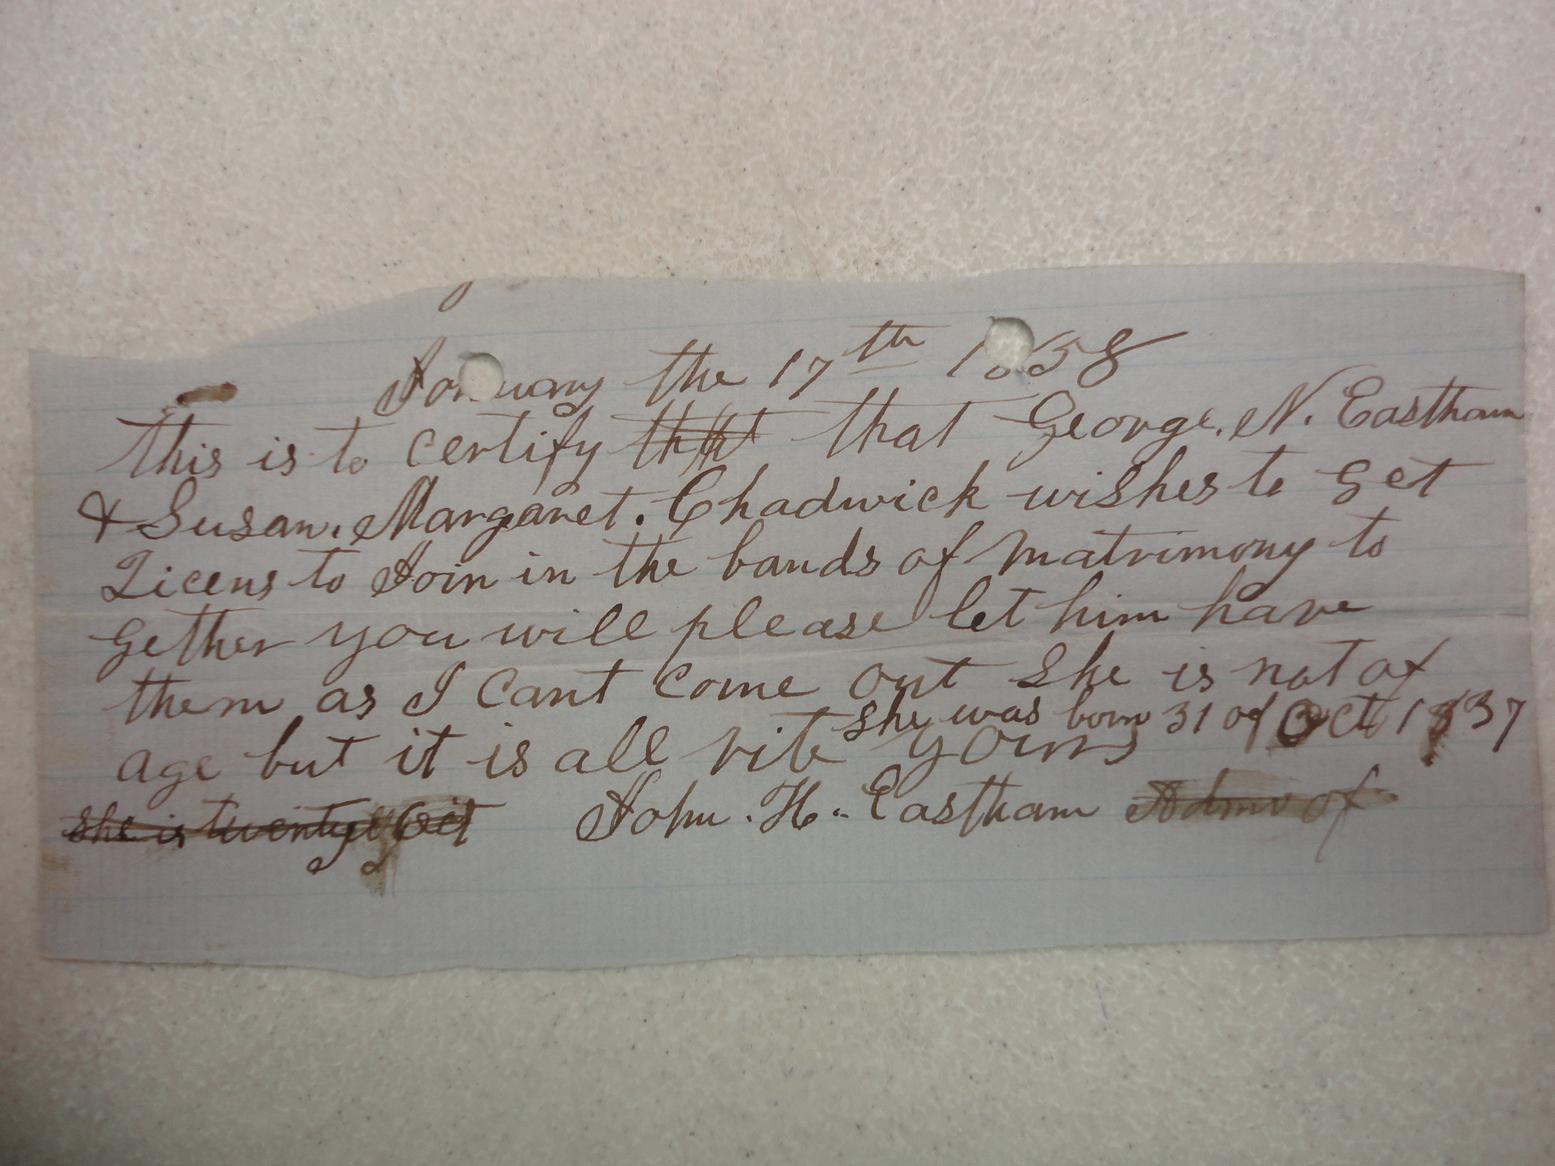 January the 17th 1858
this is to certify that that George. N. Eastham
& Susan. Margaret. Chadwick wishes to get
Licens to Join in the bands of matrimony to
gether you will please let him have
them as I cant come out She is not of
She was born 31 of Oct 1837
age but it is all rite yours
she is twenty John. H. Eastham Admr of